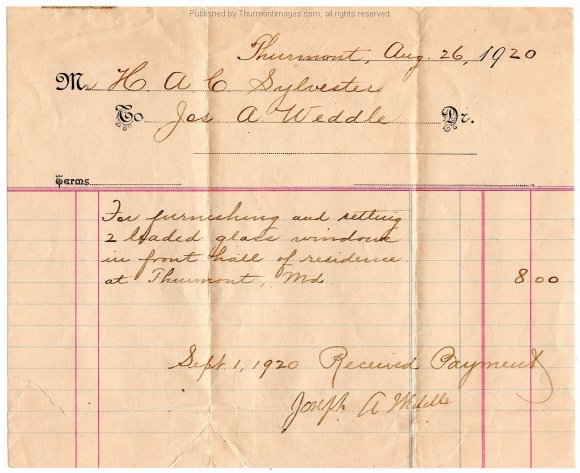 Published by Thurmontimages.com, all rights reserved
Thurmont, Aug. 26, 1920
Mr H A C Sylvester
To Jos A Weddle Dr.
Terms
For furnishing and setting
2 leaded glass windows
in front hall of residence
at Thurmont, Md. 8 00
Sept. 1, 1920 Received Payment
Joseph A Weddle